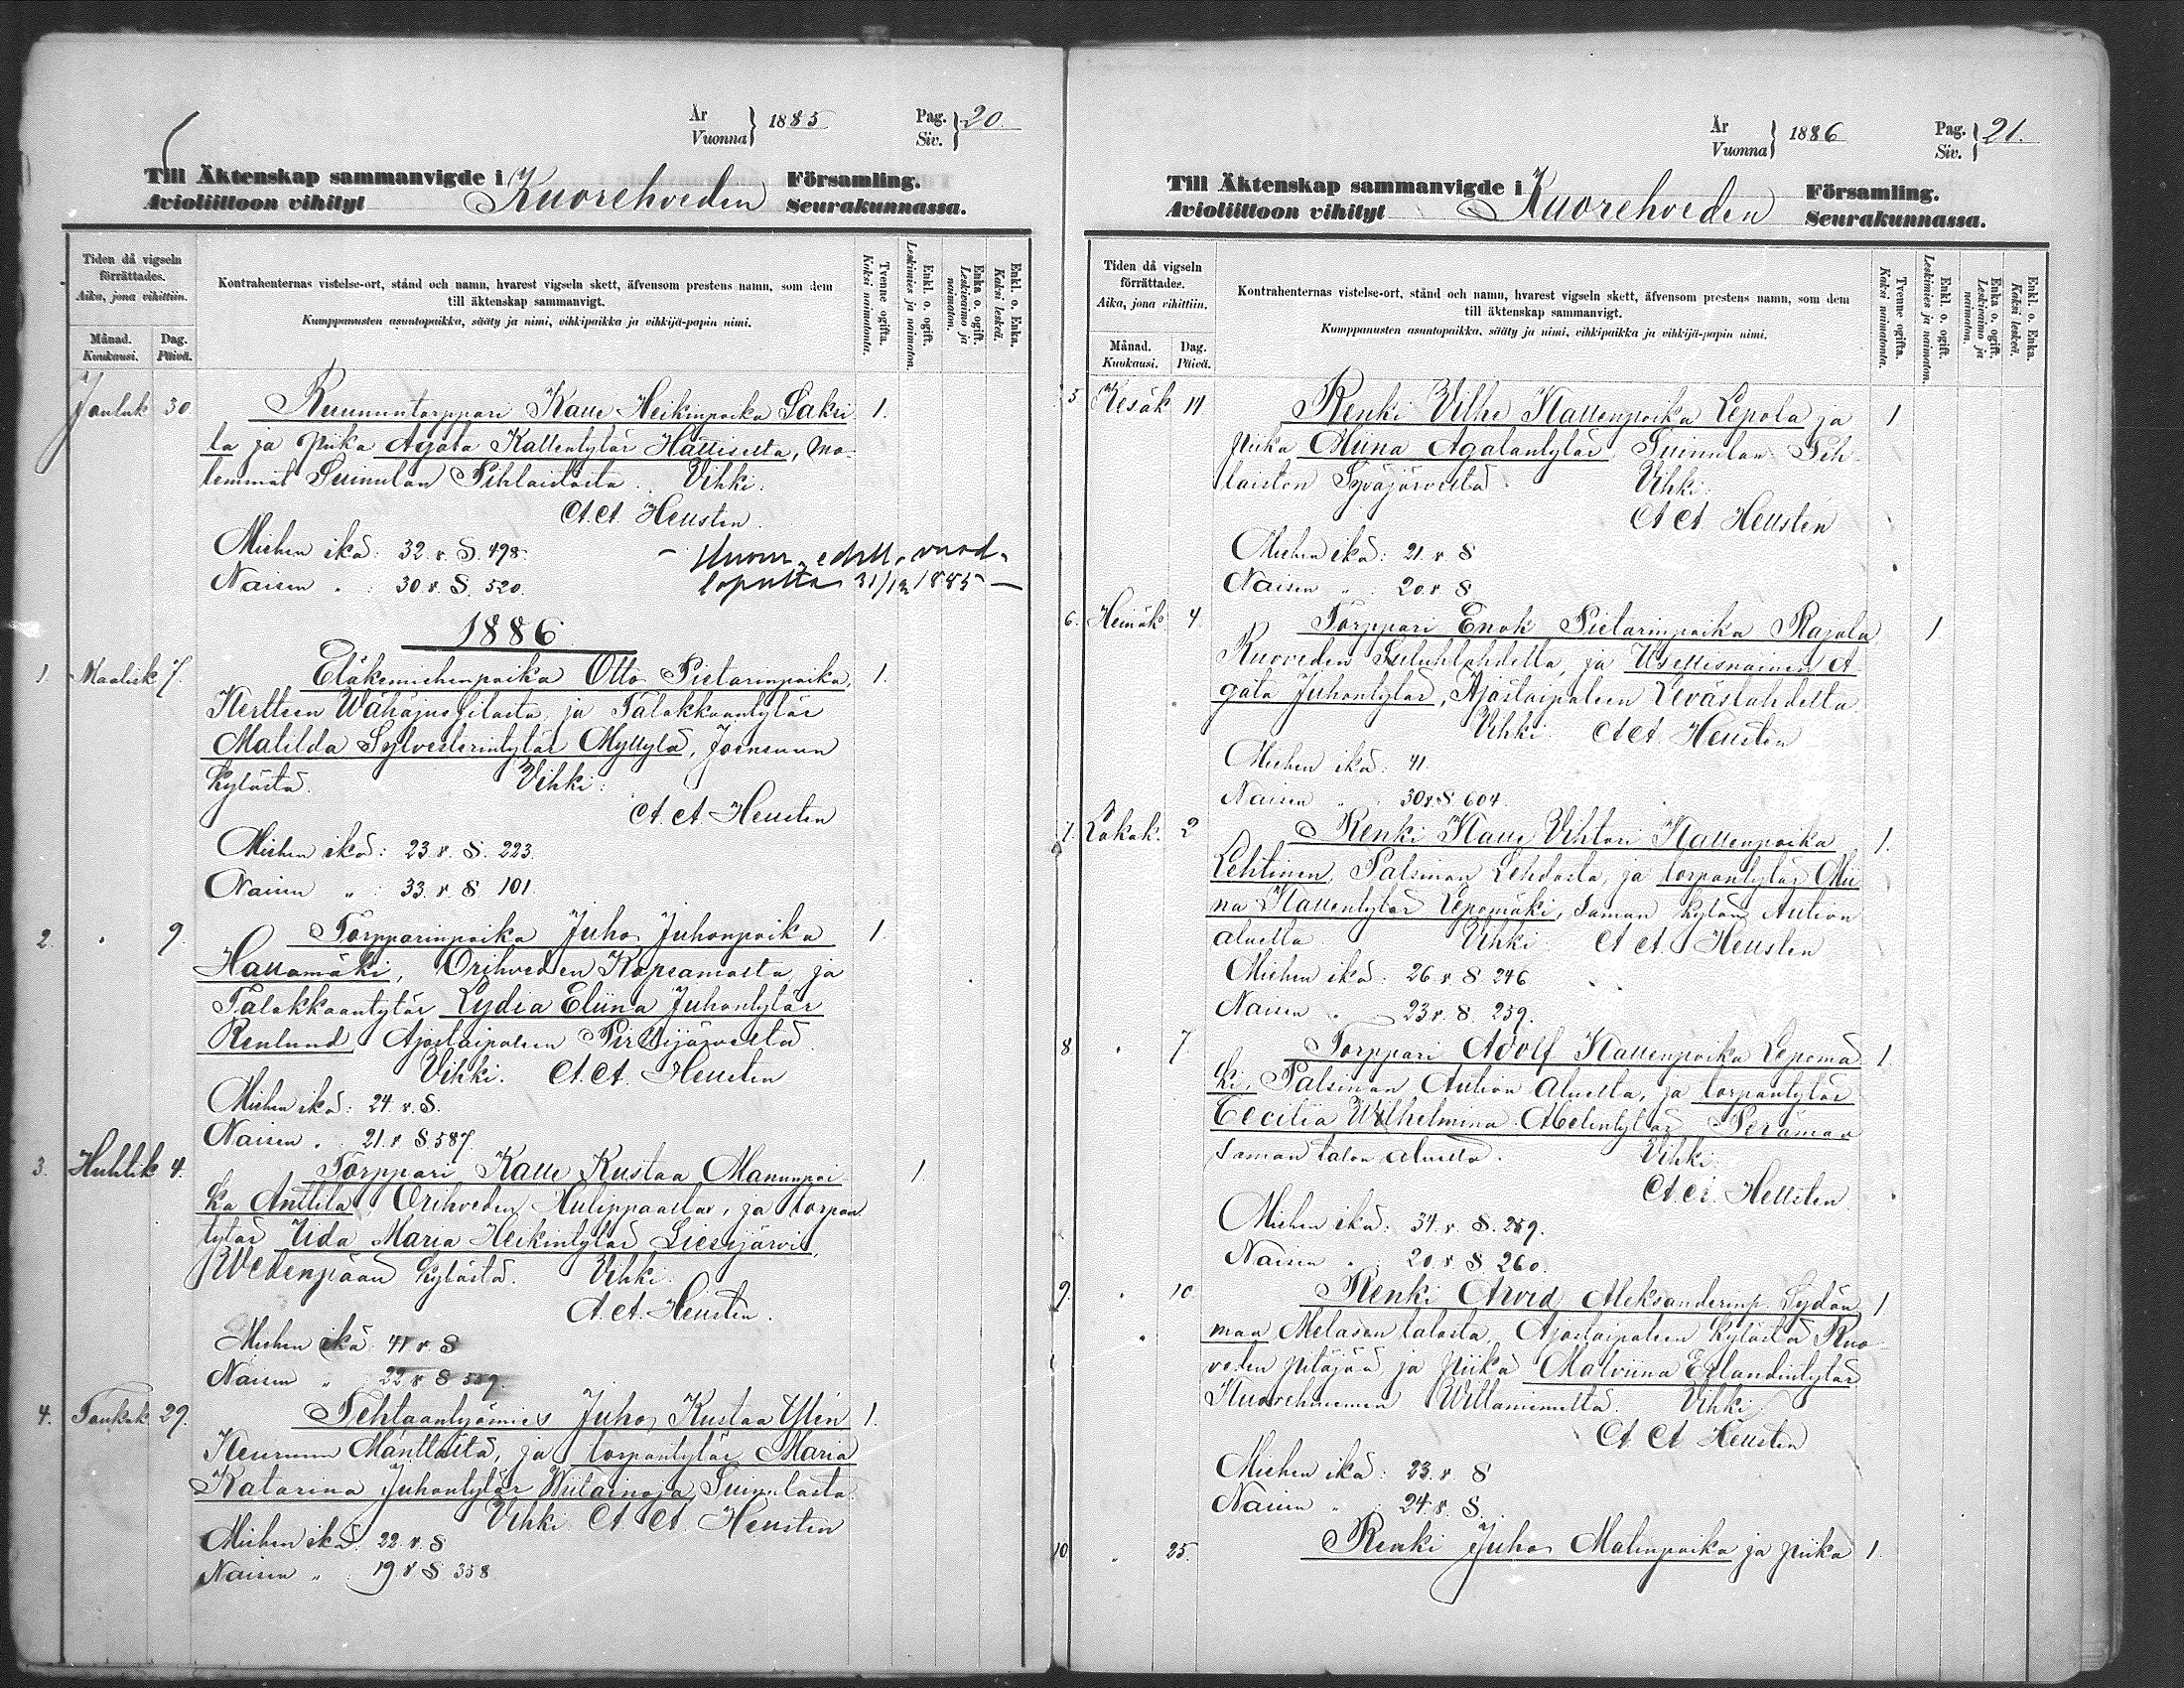 År
Vuonna } 1885 Pag. Siv. } 20.
Till Äktenskap sammanvigde i Kuorehveden Församling.
Avioliittoon vihityt Seurakunnassa.
Tiden då vigseln förrättades.
Aika, jona vihittiin.
Månad. Kuukausi.
Dag. Päivä.
Kontrahenternas vistelse-ort, stånd och namn, hvarest vigseln skett, äfvensom prestens namn, som dem
till äktenskap sammanvigt.
Kumppanusten asuntopaikka, sääty ja nimi, vihkipaikka ja vihkijä-papin nimi.
Tvenne ogifta. Kaksi naimatonta.
Enkl. o. ogift. Leskimies ja naimaton.
Enka o. ogift. Leskivaimo ja naimaton.
Enkl. o. Enka. Kaksi leskeä.
Jouluk 30 Ruununtorppari Kalle Heikinpoika Laksi 1.
la ja piika Agata Kallentytär Halliselta, mo-
lemmat Suinulan Pihlaistosta. Vihki.
A. A. Heusten.
Miehen ikä: 32. v. S. 498.
Naisen " : 30. v. S. 520.
loputta 31/12 1885 —
1886
1 Maalisk 7. Eläkemiehenpoika Otto Pietarinpoika, 1.
Kerttun ja Talokkaantytär
Matilda Sylvesterintytär Myllylä, Joensuun
kylästä. Vihki:
A. A. Heusten
Miehen ikä: 23. v. S. 223.
Naisen " : 33. v. S 101.
2. " 9. Torpparinpoika Juho Juhonpoika 1.
Hallamäki, Oriveden Kopsamosta, ja
Talokkaantytär Lydia Eliina Juhontytär
Renlund, Ajostaipaleen Pirttijärveltä.
Vihki. A. A. Heusten
Miehen ikä: 24. v. S.
Naisen " 21. v S. 587.
3. Huhtik 4. Torppari Kalle Kustaa Manunpoi 1
ka Anttila, Orihveden ja torpan
tytär Iida Maria Heikintytär Liesijärvi,
Wedenpään kylästä. Vihki.
A. A. Heusten.
Miehen ikä 41 v. S
Naisen " 22 v. S 559.
4. Toukok 29. Tehtaantyömies Juho Kustaa Ylén 1.
Keuruun Mänttästä, ja torpantytär Maria
Katarina Juhontytär Wiitainoja Suinulasta.
Vihki A. A. Heusten
Miehen ikä. 22. v. S
Naisen " 19. v S 358
År
Vuonna } 1886 Pag. Siv. } 21.
Till Äktenskap sammanvigde i Kuorehveden Församling.
Avioliittoon vihityt Seurakunnassa.
Tiden då vigseln förrättades.
Aika, jona vihittiin.
Månad. Kuukausi.
Dag. Päivä.
Kontrahenternas vistelse-ort, stånd och namn, hvarest vigseln skett, äfvensom prestens namn, som dem
till äktenskap sammanvigt.
Kumppanusten asuntopaikka, sääty ja nimi, vihkipaikka ja vihkijä-papin nimi.
Tvenne ogifta. Kaksi naimatonta.
Enkl. o. ogift. Leskimies ja naimaton.
Enka o. ogift. Leskivaimo ja naimaton.
Enkl. o. Enka. Kaksi leskeä.
5 Kesäk 14 Renki Vilhe Kallenpoika Lepola ja 1
piika Miina Agatantytär Suinulan Pih-
laiston Syväjärveltä. Vihki.
A A Heusten
Miehen ikä: 21. v. S
Naisen " : 20. v S
6. Heinäk. 4. Torppari Enok Pietarinpoika Rajala 1
Ruoveden ja Itsellisnainen A
gata Juhontytär, Ajostaipaleen Leväslahdelta.
Vihki A A. Heusten
Miehen ikä: 41.
Naisen " 30 v. S. 604.
7. Lokak. 2 Renki Kalle Vihtori Kallenpoika 1.
Lehtinen, Palsinan Lehdosta, ja torpantytär Mii
na Kallentytär Lepomäki, saman kylän Aution
aluelta Vihki A. A. Heusten
Miehen ikä: 26. v S 246
Naisen " 23. v. S. 259.
8 " 7 Torppari Adolf Kallenpoika Lepomä 1.
ki, Palsinan Aution aluelta, ja torpantytär
Cecilia Wilhelmina Abelintytär Perämaa
saman talon aluelta. Vihki.
A. A. Heusten
Miehen ikä: 34. v. S. 259.
Naisen " : 20. v. S 260.
9. " 10 Renki Arvid Aleksanderinp. Sydän 1
maa Melasen talosta, Ajostaipaleen kylästä Ruo
veden pitäjää, ja piika Malviina Erlandintytär
Vihki
A A Heusten
Miehen ikä: 23. v. S
Naisen " : 24. v. S.
10 " 25. Renki Juho Matinpoika ja piika 1.